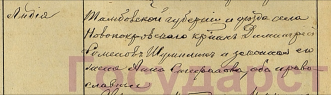 Лидія
Тамбовской губерніи и уѣзда села
Новопокровскаго крѣ-нъ Димитрій
Романовъ и законная его
жена Анна обa право
славные
Государст